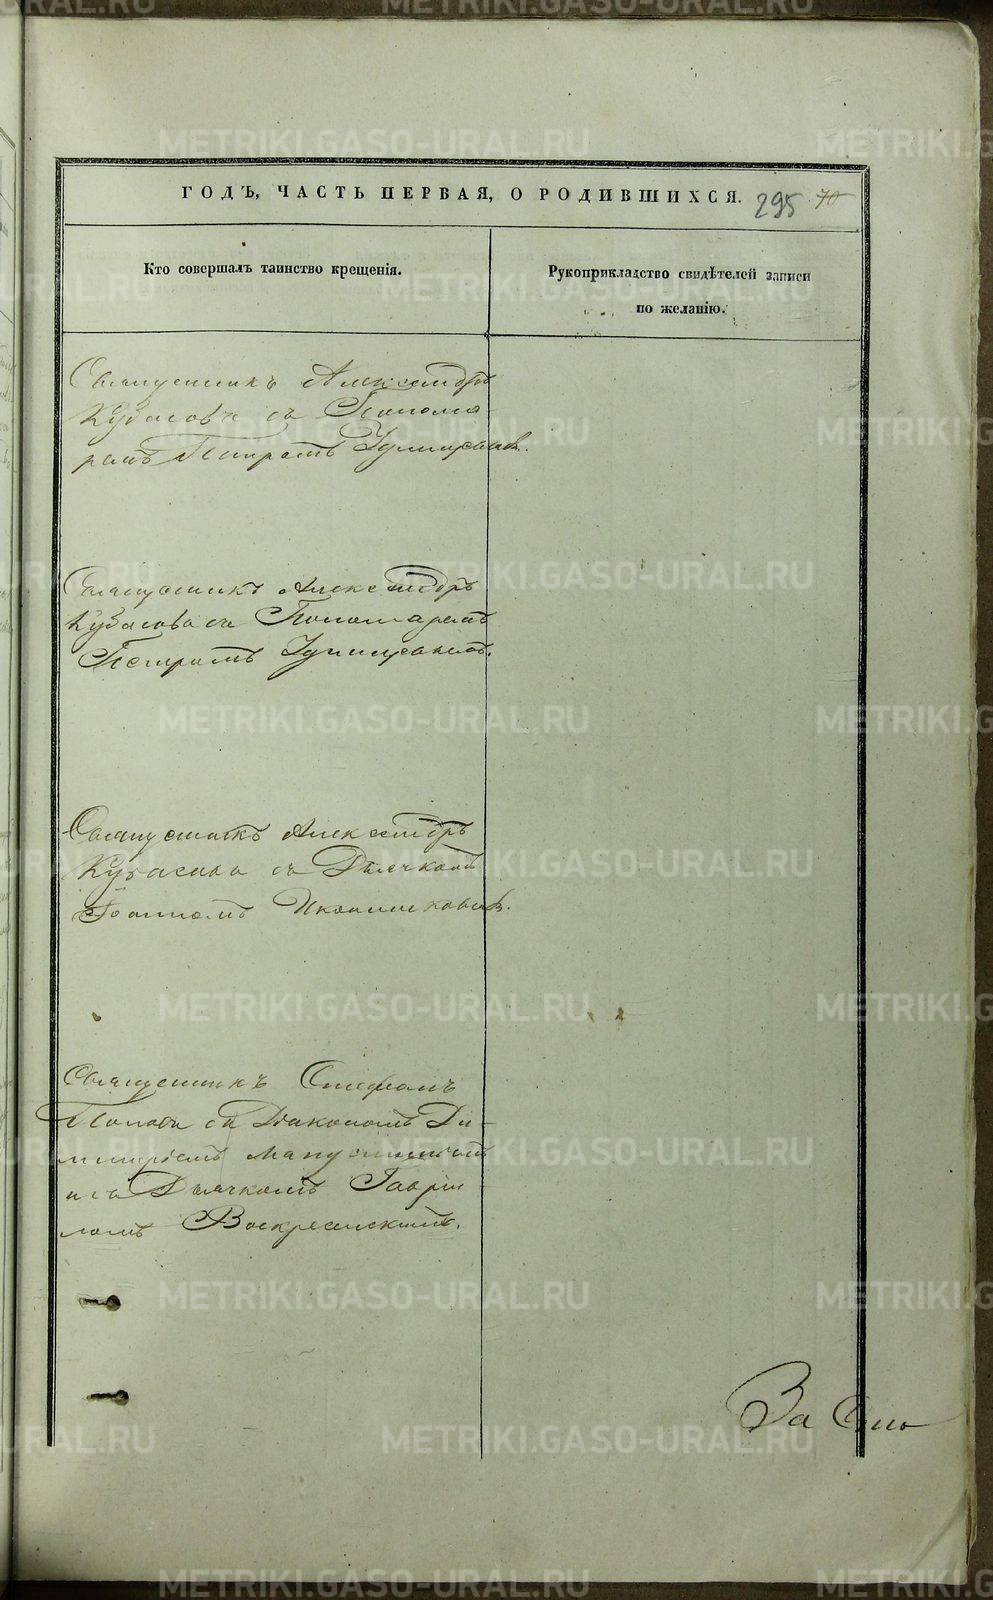 ГОДЪ, ЧАСТЬ ПЕРВАЯ, О РОДИВШИХСЯ. 295 70
Кто совершалъ таинство крещенія.
Рукоприкладство свидѣтелей записи
по желанію.
Священникъ Александръ
Кубасовъ съ Понома-
ремъ Петромъ
Священникъ Александръ
Кубасовъ съ Пономаремъ
Петромъ
Священникъ Александръ
Кубасовъ съ Дьячкомъ
Іоанномъ Иконниковымъ.
Священникъ Стефанъ
Поповъ съ Діакономъ Ди-
митріемъ
и съ Дьячкомъ Гаврі-
ломъ Воскресенскимъ.
За
METRIKI.GASO-URAL.RU